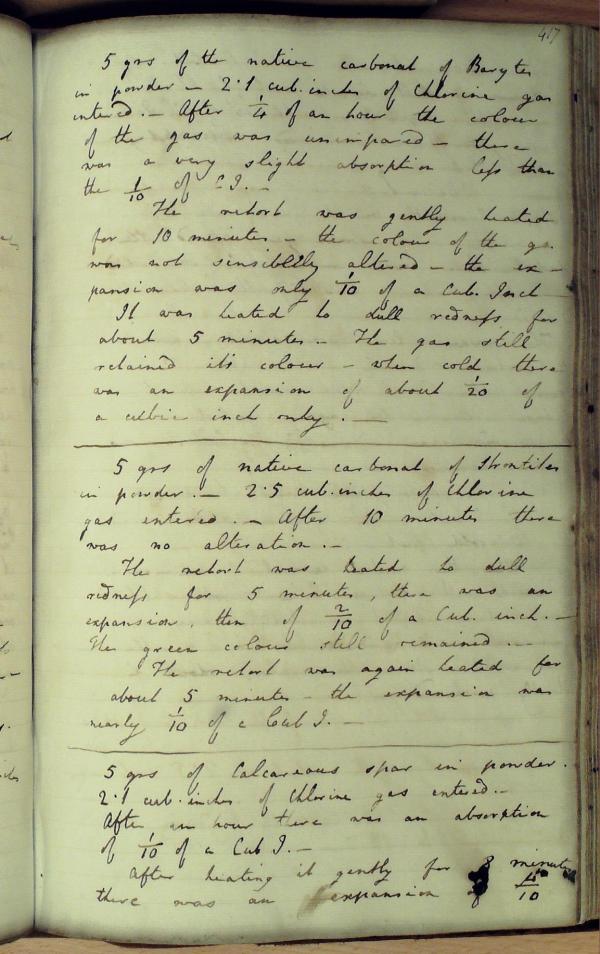 417
5 grs of the native carbonat of Barytes
in powder — 2·1 cub. inches of Chlorine gas
entered. — After 1/4 of an hour the colour
of the gas was unimpared — there
was a very slight absorption less than
the 1/10 of C I. —
The retort was gently heated
for 10 minutes — the colour of the gas
was not sensiblily altered — the ex-
pansion was only 1/10 of a Cub. Inch
It was heated to dull redness for
about 5 minutes. — The gas still
retained its colour — when cold there
was an expansion of about 1/20 of
a cubic inch only. —
5 grs of native carbonat of Strontites
in powder. — 2·5 cub. inches of Chlorine
gas entered. — After 10 minutes there
was no alteration. —
The retort was heated to dull
redness for 5 minutes, there was an
expansion, then of 2/10 of a Cub. inch. —
The green colour still remained. —
The retort was again heated for
about 5 minutes — the expansion was
nearly 1/10 of a Cub I. —
5 grs of Calcareous spar in powder.
2·1 cub. inches of Chlorine gas entered. —
After an hour there was an absorption
of 1/10 of a Cub I. —
After heating it gently for 8 minutes
there was an expansion of /10